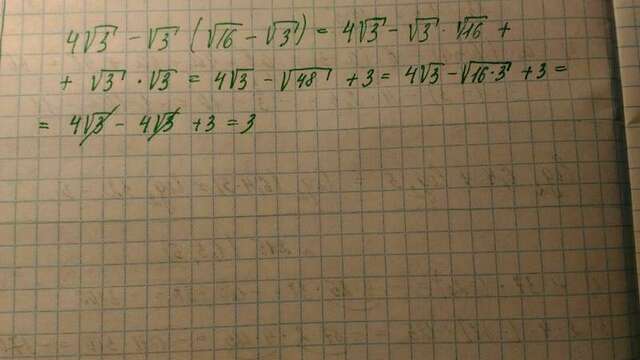 4√3 - √3 (√16 - √3) = 4√3 - √3 · √16 +
+ √3 · √3 = 4√3 - √48 + 3 = 4√3 - √16·3 + 3 =
= 4√3 - 4√3 + 3 = 3